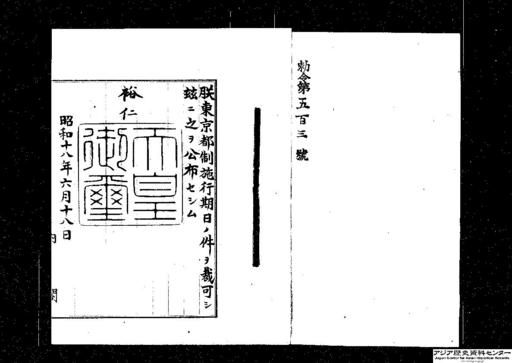 勅令第五百三號
朕東京都制施行期日ノ件ヲ裁可シ
玆ニ之ヲ公布セシム
裕仁
天皇
御璽
昭和十八年六月十八日
内
閣
アジア歴史資料センター
Japan Center for Asian Historical Records